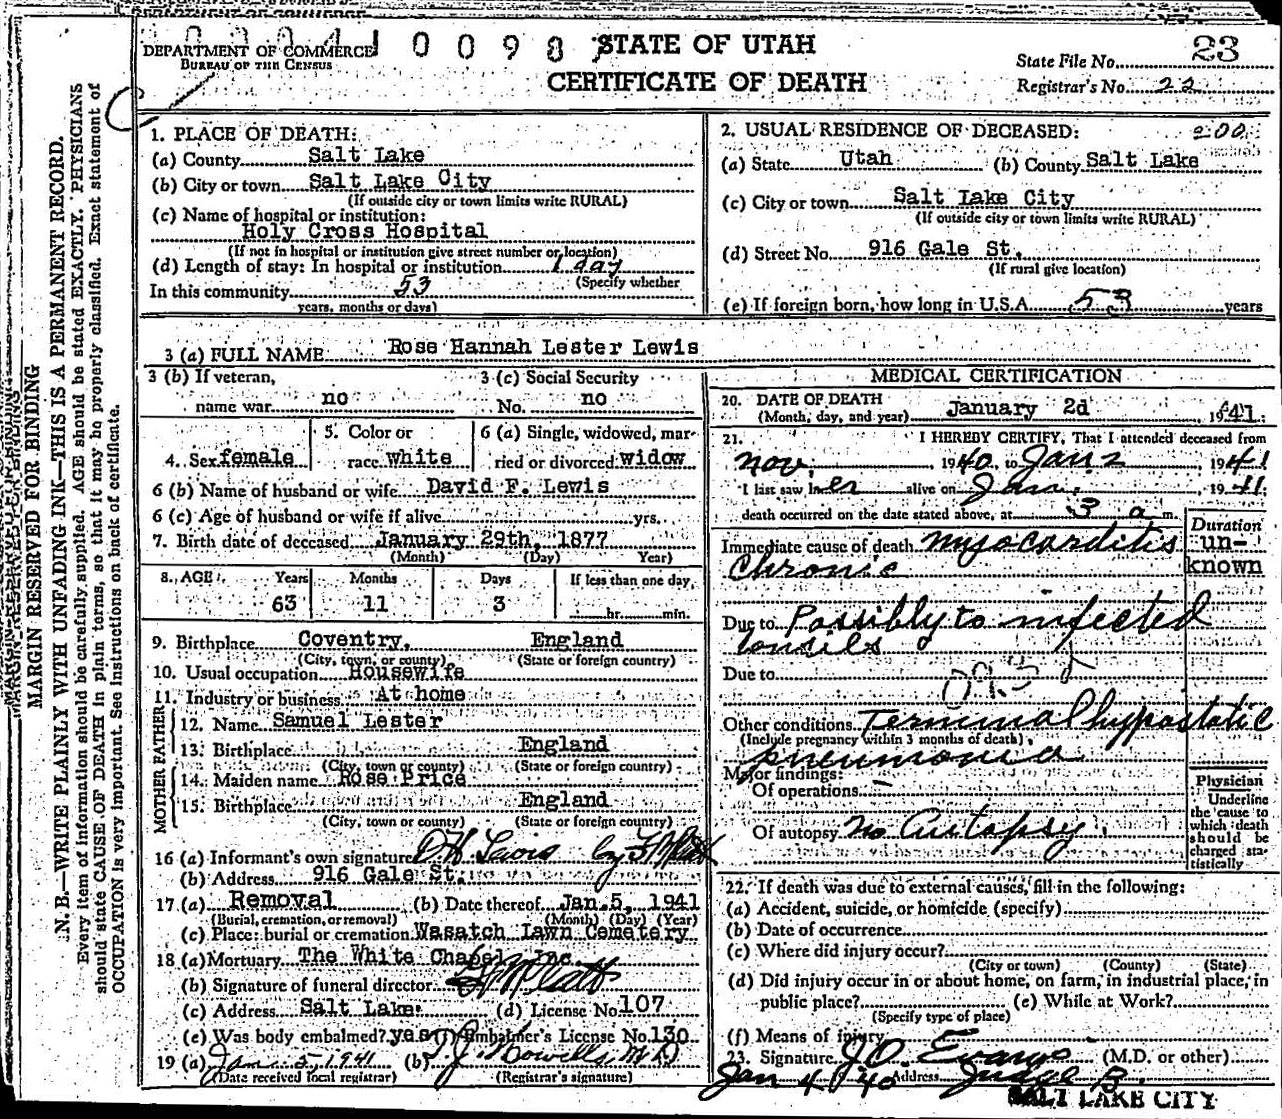 DEPARTMENT OF COMMERCE
BUREAU OF THE CENSUS
STATE OF UTAH
CERTIFICATE OF DEATH
State File No. 23
Registrar's No. 22
MARGIN RESERVED FOR BINDING
N. B.—WRITE PLAINLY WITH UNFADING INK—THIS IS A PERMANENT RECORD.
Every item of information should be carefully supplied. AGE should be stated EXACTLY. PHYSICIANS
should state CAUSE OF DEATH in plain terms, so that it may be properly classified. Exact statement of
OCCUPATION is very important. See instructions on back of certificate.
1. PLACE OF DEATH:
(a) County Salt Lake
(b) City or town Salt Lake City
(If outside city or town limits write RURAL)
(c) Name of hospital or institution:
Holy Cross Hospital
(If not in hospital or institution give street number or location)
(d) Length of stay: In hospital or institution 1 day
(Specify whether
In this community 53
years, months or days)
2. USUAL RESIDENCE OF DECEASED:
(a) State Utah (b) County Salt Lake
(c) City or town Salt Lake City
(If outside city or town limits write RURAL)
(d) Street No. 916 Gale St.
(If rural give location)
(e) If foreign born, how long in U.S.A. 53 years
3 (a) FULL NAME Rose Hannah Lester Lewis
3 (b) If veteran,
name war no
3 (c) Social Security
No. no
4. Sex female
5. Color or
race white
6 (a) Single, widowed, mar-
ried or divorced widow
6 (b) Name of husband or wife David F. Lewis
6 (c) Age of husband or wife if alive yrs.
7. Birth date of deceased January 29th, 1877
(Month) (Day) Year)
8. AGE Years Months Days If less than one day
63 11 3 hr. min.
9. Birthplace Coventry, England
(City, town, or county) (State or foreign country)
10. Usual occupation Housewife
11. Industry or business At home
FATHER
12. Name Samuel Lester
13. Birthplace England
(City, town or county) (State or foreign country)
MOTHER
14. Maiden name Rose Price
15. Birthplace England
(City, town or county) (State or foreign country)
16 (a) Informant's own signature
(b) Address 916 Gale St.
17 (a) Removal (b) Date thereof Jan. 5, 1941
(Burial, cremation, or removal) (Month) (Day) (Year)
(c) Place: burial or cremation Wasatch Lawn Cemetery
18 (a) Mortuary The White Chapel Inc.
(b) Signature of funeral director
(c) Address Salt Lake. (d) License No. 107
(e) Was body embalmed? yes Embalmer's License No. 130
19 (a) Jan. 5, 1941 (b)
(Date received local registrar) (Registrar's signature)
MEDICAL CERTIFICATION
20. DATE OF DEATH
(Month, day, and year) January 2d 1941.
21. I HEREBY CERTIFY, That I attended deceased from
Nov. 1940 to Jan 2 1941
I last saw her alive on Jan. 1941.
death occurred on the date stated above, at 3 a m.
Duration
Immediate cause of death Myocarditis
Chronic
un-
known
Due to Possibly to infected
tonsils
Due to
Other conditions Terminal hypostatic
(Include pregnancy within 3 months of death)
pneumonia
Major findings:
Of operations —
Of autopsy No Autopsy.
Physician
Underline
the cause to
which death
should be
charged sta-
tistically
22. If death was due to external causes, fill in the following:
(a) Accident, suicide, or homicide (specify)
(b) Date of occurrence
(c) Where did injury occur?
(City or town) (County) (State)
(d) Did injury occur in or about home, on farm, in industrial place, in
public place? (e) While at Work?
(Specify type of place)
(f) Means of injury
23. Signature J O Evans (M.D. or other)
Jan 4 40 Address Judge B.
SALT LAKE CITY